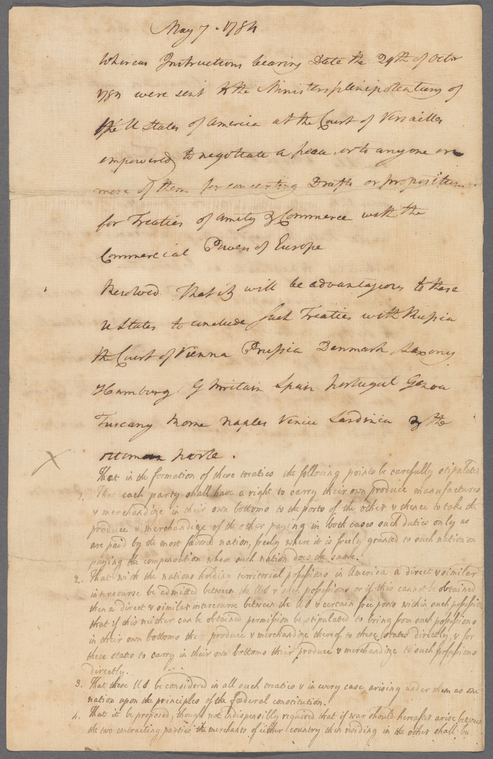 May 7. 1784
Whereas Instructions bearing Date the 29th of Octr
1783 were sent to the Ministers plenipotentiary of
the U States of America at the Court of Versailles
empowered to negotiate a peace or to any one or
more of them for concerting Drafts or propositions
for Treaties of amity & Commerce with the
Commercial Powers of Europe
Resolved That it will be advantageous to these
U States to conclude such Treaties with Russia
the Court of Vienna Prussia Denmark, Saxony
Hamburg G Britain Spain Portugal Genoa
Tuscany Rome Naples Venice Sardinia & the
Ottoman Porte.
That in the formation of these treaties the following points be carefully stipulated
1. That each party shall have a right to carry their own produce manufactures
& merchandize in their own bottoms to the ports of the other & thence to take the
produce & merchandize of the other paying in both cases such duties only as
are paid by the most favored nation, freely where it is freely granted to such nation on
paying the compensation where such nation does the same.
2. That with the nations holding territorial possessions in America a direct & similar
intercourse be admitted between the U S & such possessions or if this cannot be obtained
then a direct & similar intercourse between the U S & certain free ports within such possessions
that if this neither can be obtained permission be stipulated to bring from such possessions
in their own bottoms the produce & merchandize thereof to these states directly, & for
these states to carry in their own bottoms their produce & merchandize to such possessions
directly.
3. That these U S be considered in all such treaties & in every case arising under them as one
nation upon the principles of the federal constitution.
4. That it be proposed, though not indispensibly required that if war should hereafter arise between
the two contracting parties the merchants of either country then residing in the other shall be